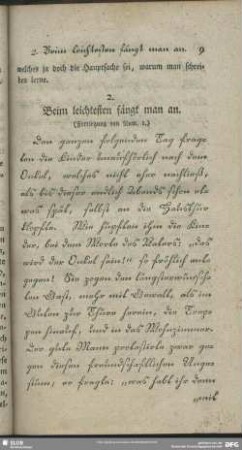 2. Beim leichtesten fängt man an. 9
welches ja doch die Hauptsache sei, warum man schrei-
ben lerne.
2.
Beim leichtesten fängt man an.
(Fortsetzung von Num. 1.)
Den ganzen folgenden Tag frag-
ten die Kinder unaufhörlich nach dem
Onkel, welches nicht eher nachließ,
als bis dieser endlich Abends schon et-
was spät, selbst an die Hausthür
klopfte. Wie hüpften ihm die Kin-
der, bei dem Worte des Vaters: „das
wird der Onkel sein!“ so fröhlich ent-
gegen! Sie zogen den längsterwünsch-
ten Gast, mehr mit Gewalt, als im
Guten zur Thüre herein, die Trep-
pen hinauf, und in das Wohnzimmer.
Der gute Mann protestirte zwar ge-
gen diesen freundschaftlichen Unge-
stüm, er fragte: „was habt ihr denn
„mit
SLUB